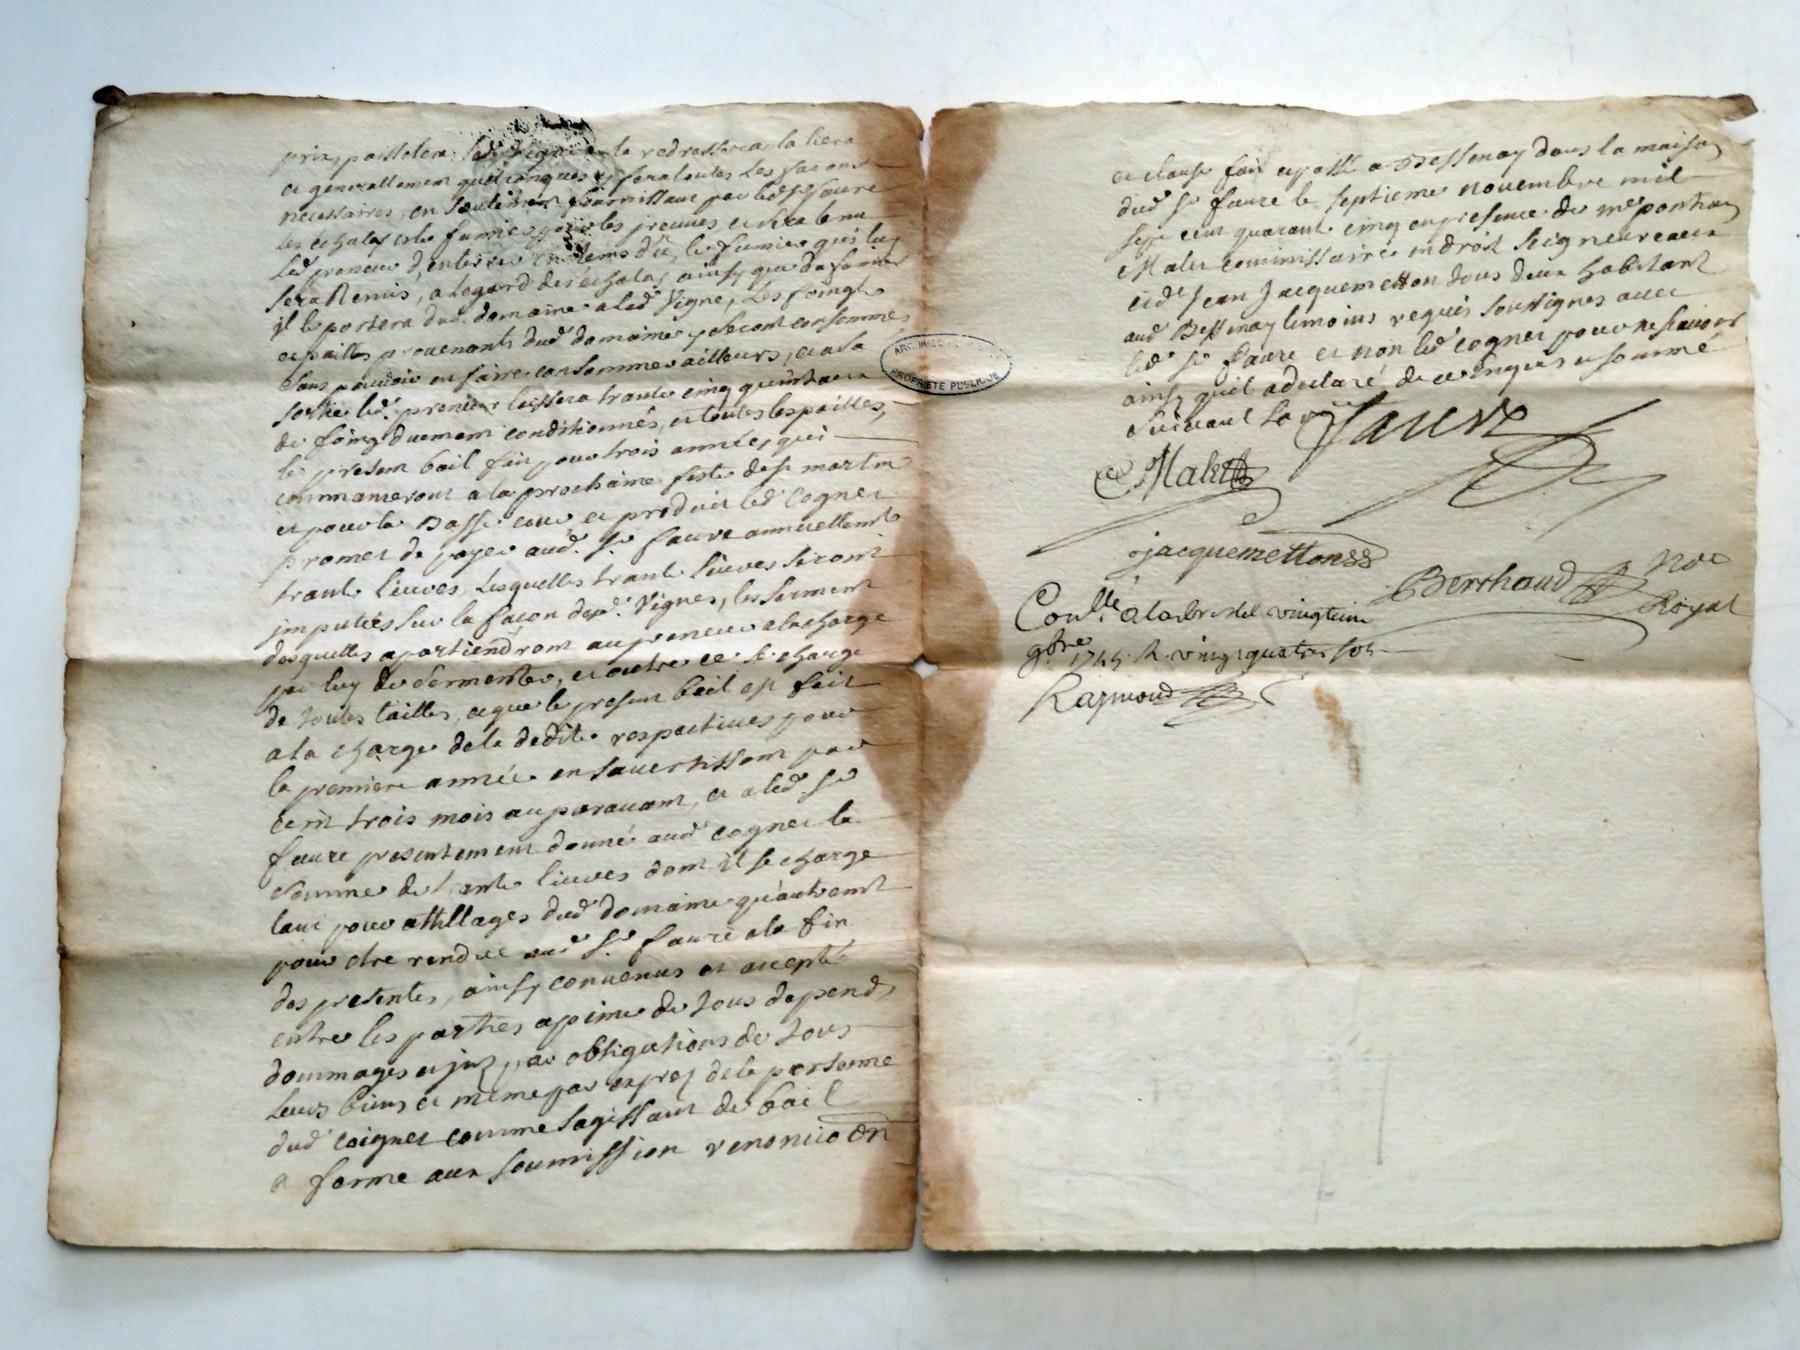 prix, paisselera lad vigne la redressera, la liera
et generallement quelconques y fera toutes les facons
necessaires, en seulement fournissant par led sr faure
les echalas et le fumier pour les preuves, et sera tenu
led preneur d'enterrer en tems dû, le fumier qui luy
sera Remis, a legard des échalas ainsy que du fumier
il le portera dud. domaine a lad vigne, Les foings
et pailles provenants dud domaine y seront consommés
sans pouvoir en faire consommer ailleurs, et a la
sortie led. preneur laissera trante cinq quintaux
de foing duement conditionnés, et toutes les pailles,
le present bail fait pour trois années qui
commanceront a la prochaine feste de st martin
et pour la Basse cour et produit led Cognet
promet de payer aud. sr faure annuellement
trante livres, Lesquelles trante livres seront
imputées sur la façon desd. vignes, les serment
desquelles apartiendront au preneur a la charge
par luy de sermenter, et outre ce se charge
de toutes tailles, et que le present bail est fait
a la charge de la dedite respectives pour
la premiere année en s'avertissant par
écrit trois mois auparavant, et a led. sr
faure presentement donné aud cognet la
somme de trante livres dont il se charge
tant pour attellages dud domaine qu'autrement
pour etre rendue aud sr faure a la fin
des presentes, ainsy convenus et accepté
entre les parties a peine de tous depends
dommages et jnz, par obligations de tous
leurs biens et meme par exprez de la personne
dud coignet comme sagissant de bail
a ferme aux soumission renonciaon
et clause fait et passé a Bessenay dans la maison
dud sr faure le septieme novembre mil
sept cent quarante cinq en presence de me
Malet commissaire en droit seigneureaux
et de jean jacquemetton tous deux habitant
aud Bessenay temoins requis soussignés avec
led sr faure et non led cognet pour ne scavoir
ainsy quil a declaré de ce enquis et sommé
suivant
faure
Malet
jacquemetton
Berthaud No.re
Royal
Conllé a la bresle le vingtun
9bre 1745. R. vingt quatre sols
Raymond
ARCHIVES
PROPRIETE PUBLIQUE